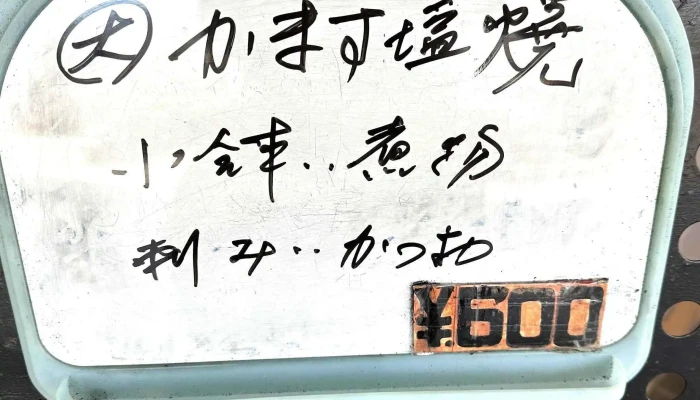 大 かます塩焼
小鉢‥煮物
刺み‥かつお
¥600